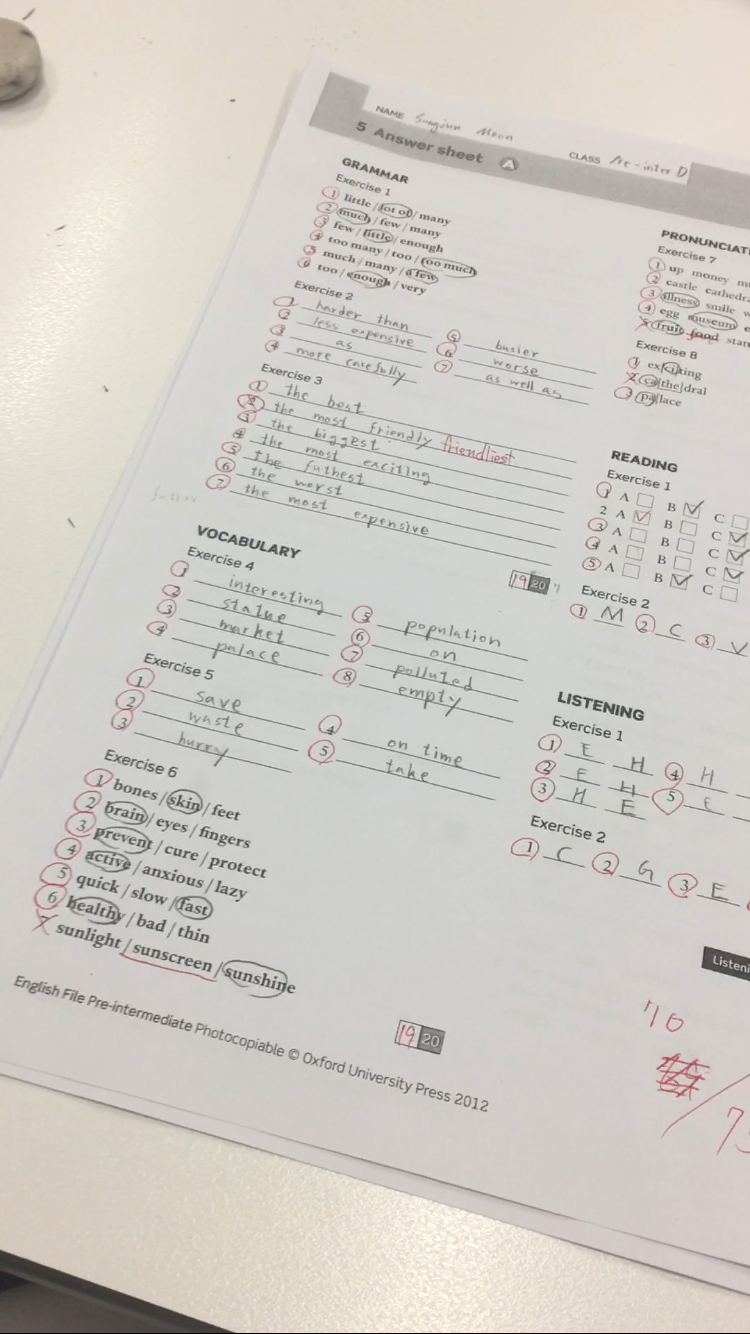 NAME Sungjun Moon
CLASS Pre-inter D
5 Answer sheet A
GRAMMAR
Exercise 1
1 little / lot of / many
2 much / few / many
3 few / little / enough
4 too many / too / too much
5 much / many / a few
6 too / enough / very
Exercise 2
1 harder than
2 less expensive
3 as
4 more carefully
5 busier
6 worse
7 as well as
Exercise 3
1 the best
2 the most friendly friendliest
3 the biggest
4 the most exciting
5 the futhest
6 the worst
7 the most expensive
19 20
VOCABULARY
Exercise 4
1 interesting
2 statue
3 market
4 palace
5 population
6 on
7 polluted
8 empty
Exercise 5
1 save
2 waste
3 hurry
4 on time
5 take
Exercise 6
1 bones / skin / feet
2 brain / eyes / fingers
3 prevent / cure / protect
4 active / anxious / lazy
5 quick / slow / fast
6 healthy / bad / thin
7 sunlight / sunscreen / sunshine
19 20
English File Pre-intermediate Photocopiable © Oxford University Press 2012
PRONUNCIAT
Exercise 7
1 up money m
2 castle cathedr
3 illness smile w
4 egg museum e
5 fruit food star
Exercise 8
1 ex|ci|ting
2 ca|the|dral
3 pa|lace
READING
Exercise 1
1 A B C
2 A B C
3 A B C
4 A B C
5 A B C
Exercise 2
1 M 2 C 3 V
LISTENING
Exercise 1
1 E H 4 H
2 E H 5 E
3 H E
Exercise 2
1 C 2 G 3 E
Listeni
70
/75